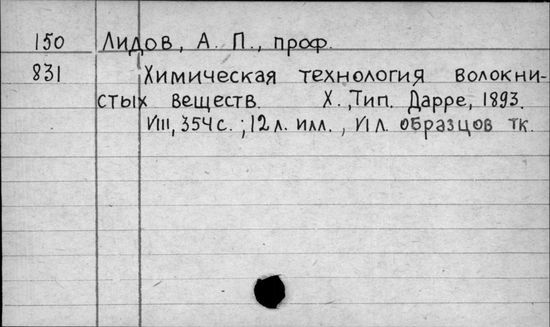 150 Лидов, А. П., проф.
831 Химическая технология волокни-
стых веществ. Х., Тип. Дарре, 1893.
VIII, 354 с.; 12 л. илл., VI л. образцов тк.